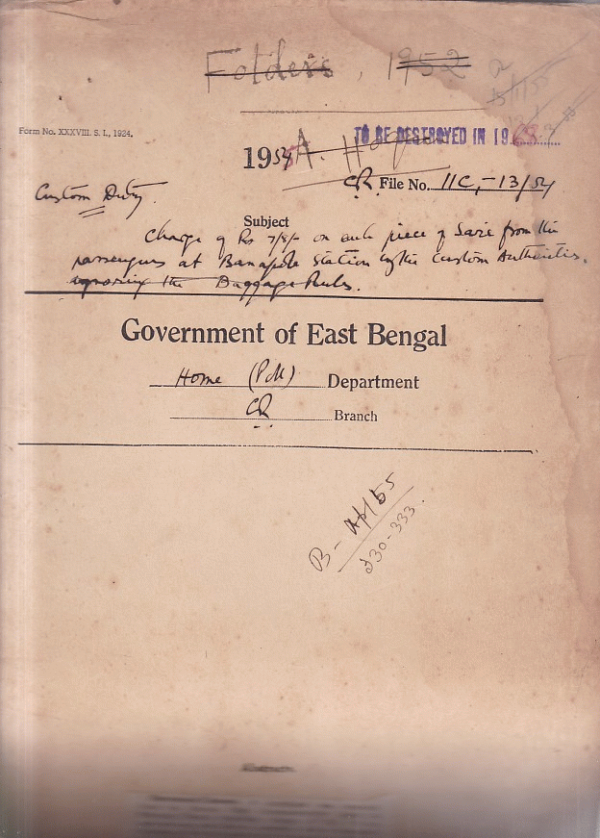 Folders, 1952
Form No. XXXVIII. S. I., 1924.
TO BE DESTROYED IN 1968
1954 A.
CR File No. 11C,-13/54
Custom Duty.
Subject
Charge of Rs 7/8/- on each piece of Sarie from the
passengers at Banapole Station by the Custom Authorities,
ignoring the Baggage Rules.
Government of East Bengal
Home (Poll) Department
CR Branch
B - Apl 55
230-333.